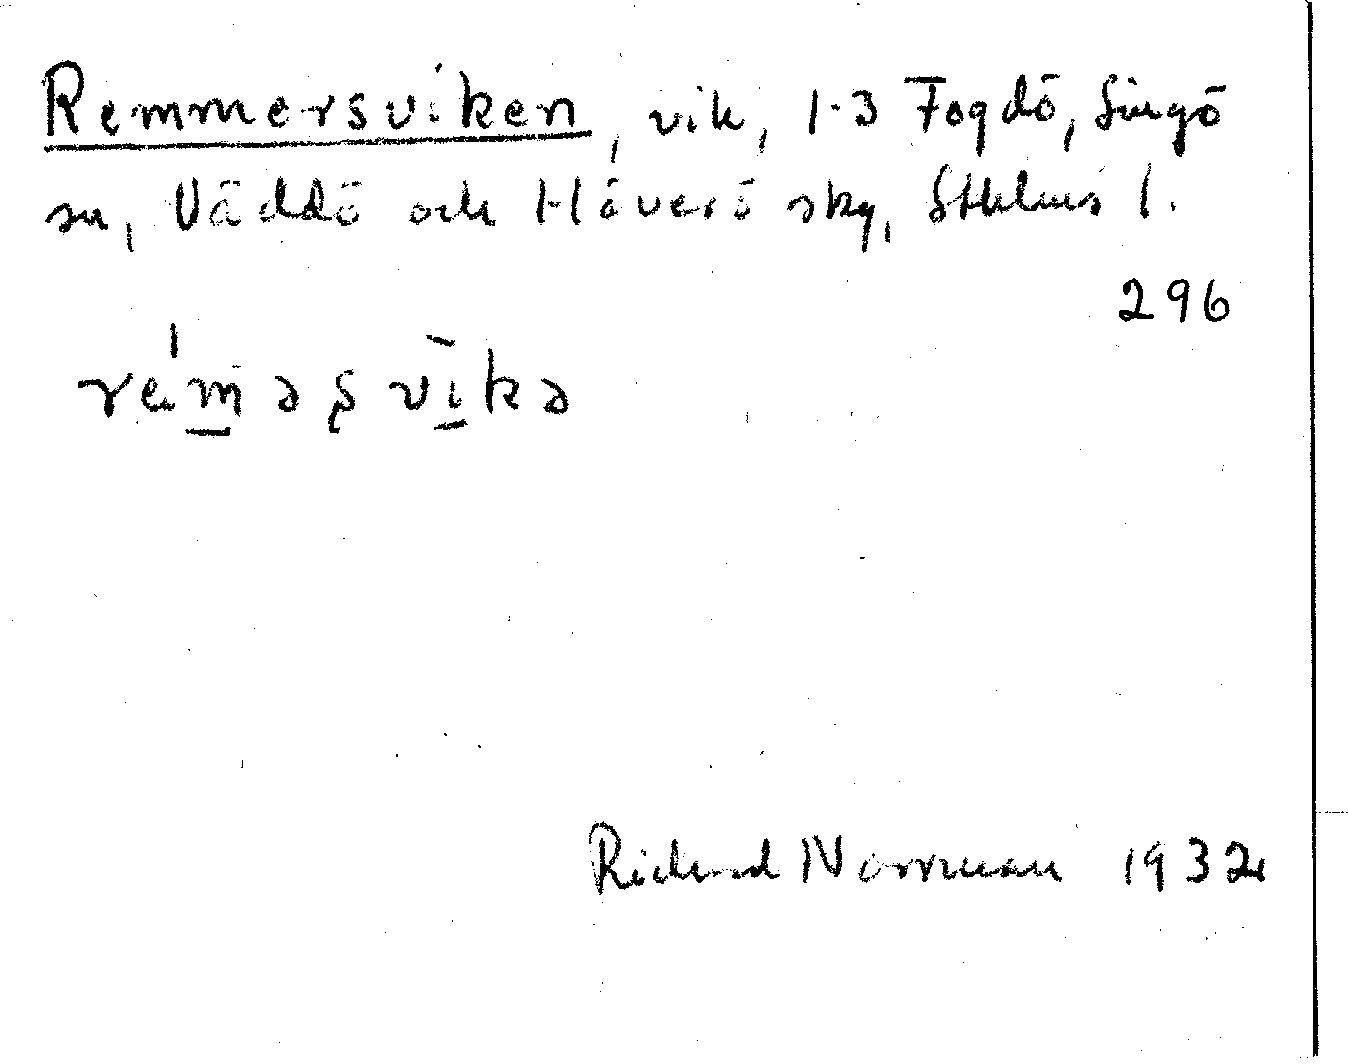 Remmersviken, vik, 1-3 Fogdö, Singö
sn, Väddö och Häverö sky, Sthlms l.
296
rémasvika
Richard Norrman 1932